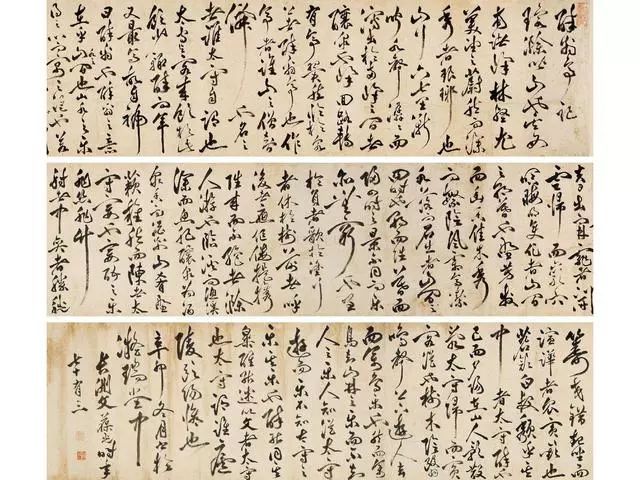 醉翁亭記
環滁皆山也其西
南諸峰林壑尤
美望之蔚然而深
秀者琅琊也
山行六七里漸
聞水聲潺潺而
瀉出於兩峰之間者
釀泉也峰回路轉
有亭翼然臨於泉
上者醉翁亭也作
亭者誰山之僧智
僊也名之
者誰太守自謂也
太守與客來飲於此
飲少輒醉而年
又最高故自號
曰醉翁也醉翁之意
在乎山水間也山水之樂
得之心而寓之酒也若
夫日出而林霏開
雲歸而巖穴
暝晦明變化者山間
之朝暮也野芳發
而幽香佳木秀
而繁陰風霜高潔
水落而石出者山間之
四時也朝而往暮而
歸四時之景不同而樂
亦無窮也至
於負者歌於塗行
者休於樹前者呼
後者應傴僂提攜
往來而不絕者滁
人遊也臨溪而漁溪
深而魚肥釀泉為酒
泉香而酒洌山肴野
蔌雜然而前陳者太
守宴也宴酣之樂
非絲非竹
射者中奕者勝觥
籌交錯起坐而
諠譁者衆賓歡也
蒼顏白髮頹然乎其
中者太守醉也
已而夕陽在山人影散
亂太守歸而賓
客從也樹林陰翳
鳴聲上下遊人去
而禽鳥樂也然而禽
鳥知山林之樂而不知
人之樂人知從太守
遊而樂不知太守之
樂其樂也醉能同其
樂醒能述以文者太守
也太守謂誰廬
陵歐陽脩也
辛卯冬月書於
瑞堂中
長洲文葆光時年
七十有二